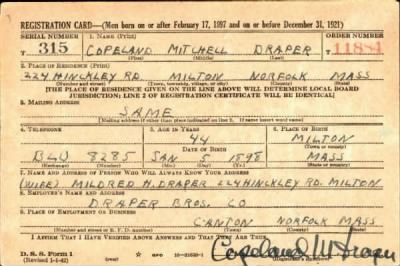 REGISTRATION CARD—(Men born on or after February 17, 1897 and on or before December 31, 1921)
SERIAL NUMBER 1. NAME (Print) ORDER NUMBER
T 315 COPELAND MITCHELL DRAPER T 11884
(First) (Middle) (Last)
2. PLACE OF RESIDENCE (Print)
224 HINCKLEY RD MILTON NORFOLK MASS
(Number and street) (Town, township, village, or city) (County) (State)
[THE PLACE OF RESIDENCE GIVEN ON THE LINE ABOVE WILL DETERMINE LOCAL BOARD
JURISDICTION; LINE 2 OF REGISTRATION CERTIFICATE WILL BE IDENTICAL]
3. MAILING ADDRESS
SAME
[Mailing address if other than place indicated on line 2. If same insert word same]
4. TELEPHONE 5. AGE IN YEARS 6. PLACE OF BIRTH
44 MILTON
DATE OF BIRTH (Town or county)
BLU 8285 JAN 5 1898 MASS
(Exchange) (Number) (Mo.) (Day) (Yr.) (State or country)
7. NAME AND ADDRESS OF PERSON WHO WILL ALWAYS KNOW YOUR ADDRESS
(WIFE) MILDRED H. DRAPER 224 HINCKLEY RD. MILTON
8. EMPLOYER'S NAME AND ADDRESS
DRAPER BROS. CO
9. PLACE OF EMPLOYMENT OR BUSINESS
CANTON NORFOLK MASS
(Number and street or R. F. D. number) (Town) (County) (State)
I AFFIRM THAT I HAVE VERIFIED ABOVE ANSWERS AND THAT THEY ARE TRUE.
D. S. S. Form 1
(Revised 1-1-42) GPO 16—21630-1
Copeland M Draper